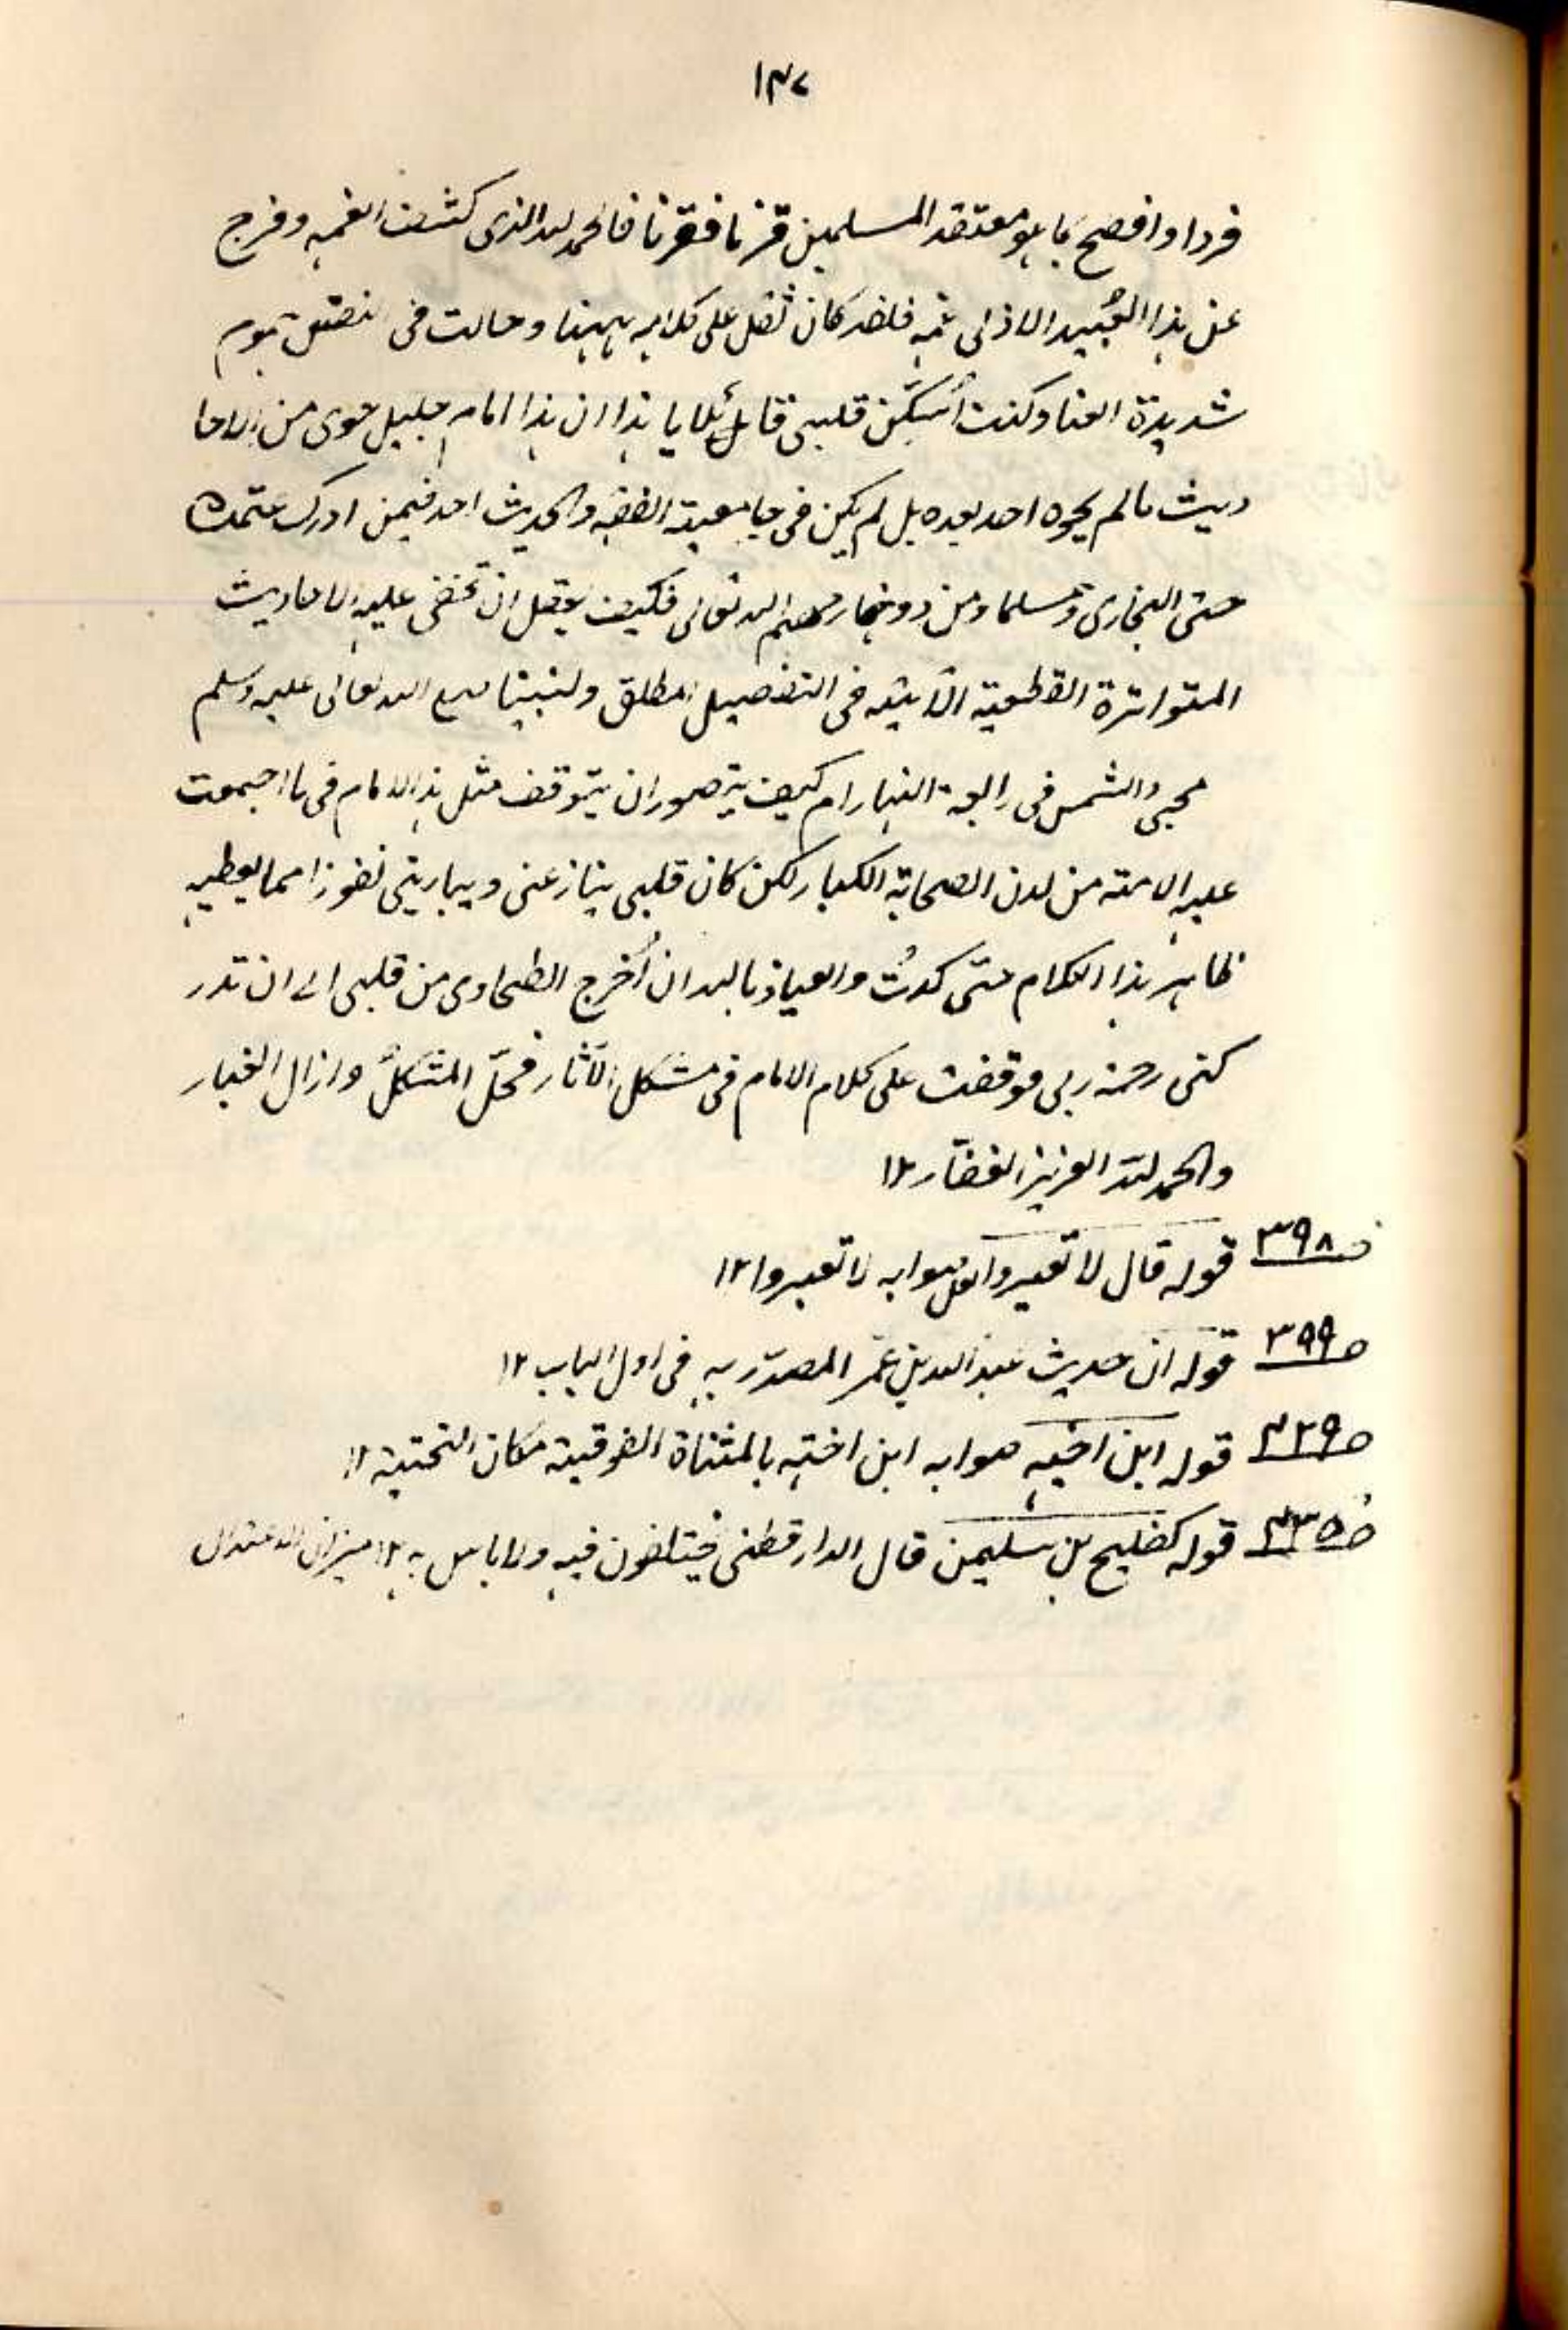 ۱۴۷
فردا وافصح بما هو معتقد المسلمين قرنا فقرنا فالحمد لله الذى كشف الغمه وفرج
عن هذا العُبيد الاذلى همه فلقد كان ثقل على كلامه ههنا وحالت فى نفسى هموم
شديدة العنا وكنت أسَكِّن قلبى قائلا يا هذا ان هذا امام جليل حوى من الاحا
ديث ما لم يحوه احد بعده بل لم يكن فى جامعية الفقه والحديث احد فيمن ادرك
حتى البخارى ومسلما ومن دونهما رحمهم الله تعالى فكيف يعقل ان تخفى عليه الاحاديث
المتواترة القطعية الآتيه فى التفضيل المطلق ولنبينا صلى الله تعالى عليه وسلم
مجيئ الشمس فى رابعة النهار ام كيف يتصور ان يتوقف مثل هذا الامام فى ما اجمعت
عليه الامته من لدن الصحابة الكبار لكن كان قلبى ينازعنى ويبارينى نفورا مما يعطيه
ظاهر هذا الكلام حتى كدتُ والعياذ بالله ان اُخرج الطحاوى من قلبى الى ان تدر
كنى رحمة ربى فوقفت على كلام الامام فى مشكل الآثار فحلّ المشكل وازال الغبار
والحمد لله العزيز الغفار ۱۲
ص ۳۹۸ قوله قال لا تغيروا لعل صوابه لا تعبروا ۱۲
ص ۳۹۹ قوله ان حديث عبد الله بن عمر المصدّر به فى اول الباب ۱۲
ص ۴۲۹ قوله ابن اخيه صوابه ابن اخته بالمثناة الفوقية مكان التحتية ۱۲
ص ۴۳۵ قوله كفليح بن سليمن قال الدارقطنى يختلفون فيه ولا باس به ۱۲ ميزان الاعتدال